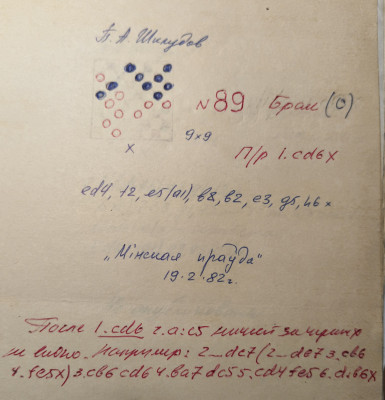 П. А. Шклудов
N 89 Брам (0)
9x9
x
П/р 1.cd6x
ed4, f2, e5(a1), b8, b2, e3, g5, h6x
„Мінская праўда"
19.2.82г.
После 1.cd6 2.a:c5 за черных
не видно. Например: 2...dc7(2...de7 3.cb6
4.fe5x) 3.cb6 cd6 4.ba7 dc5 5.cd4 fe5 6.d:b6x